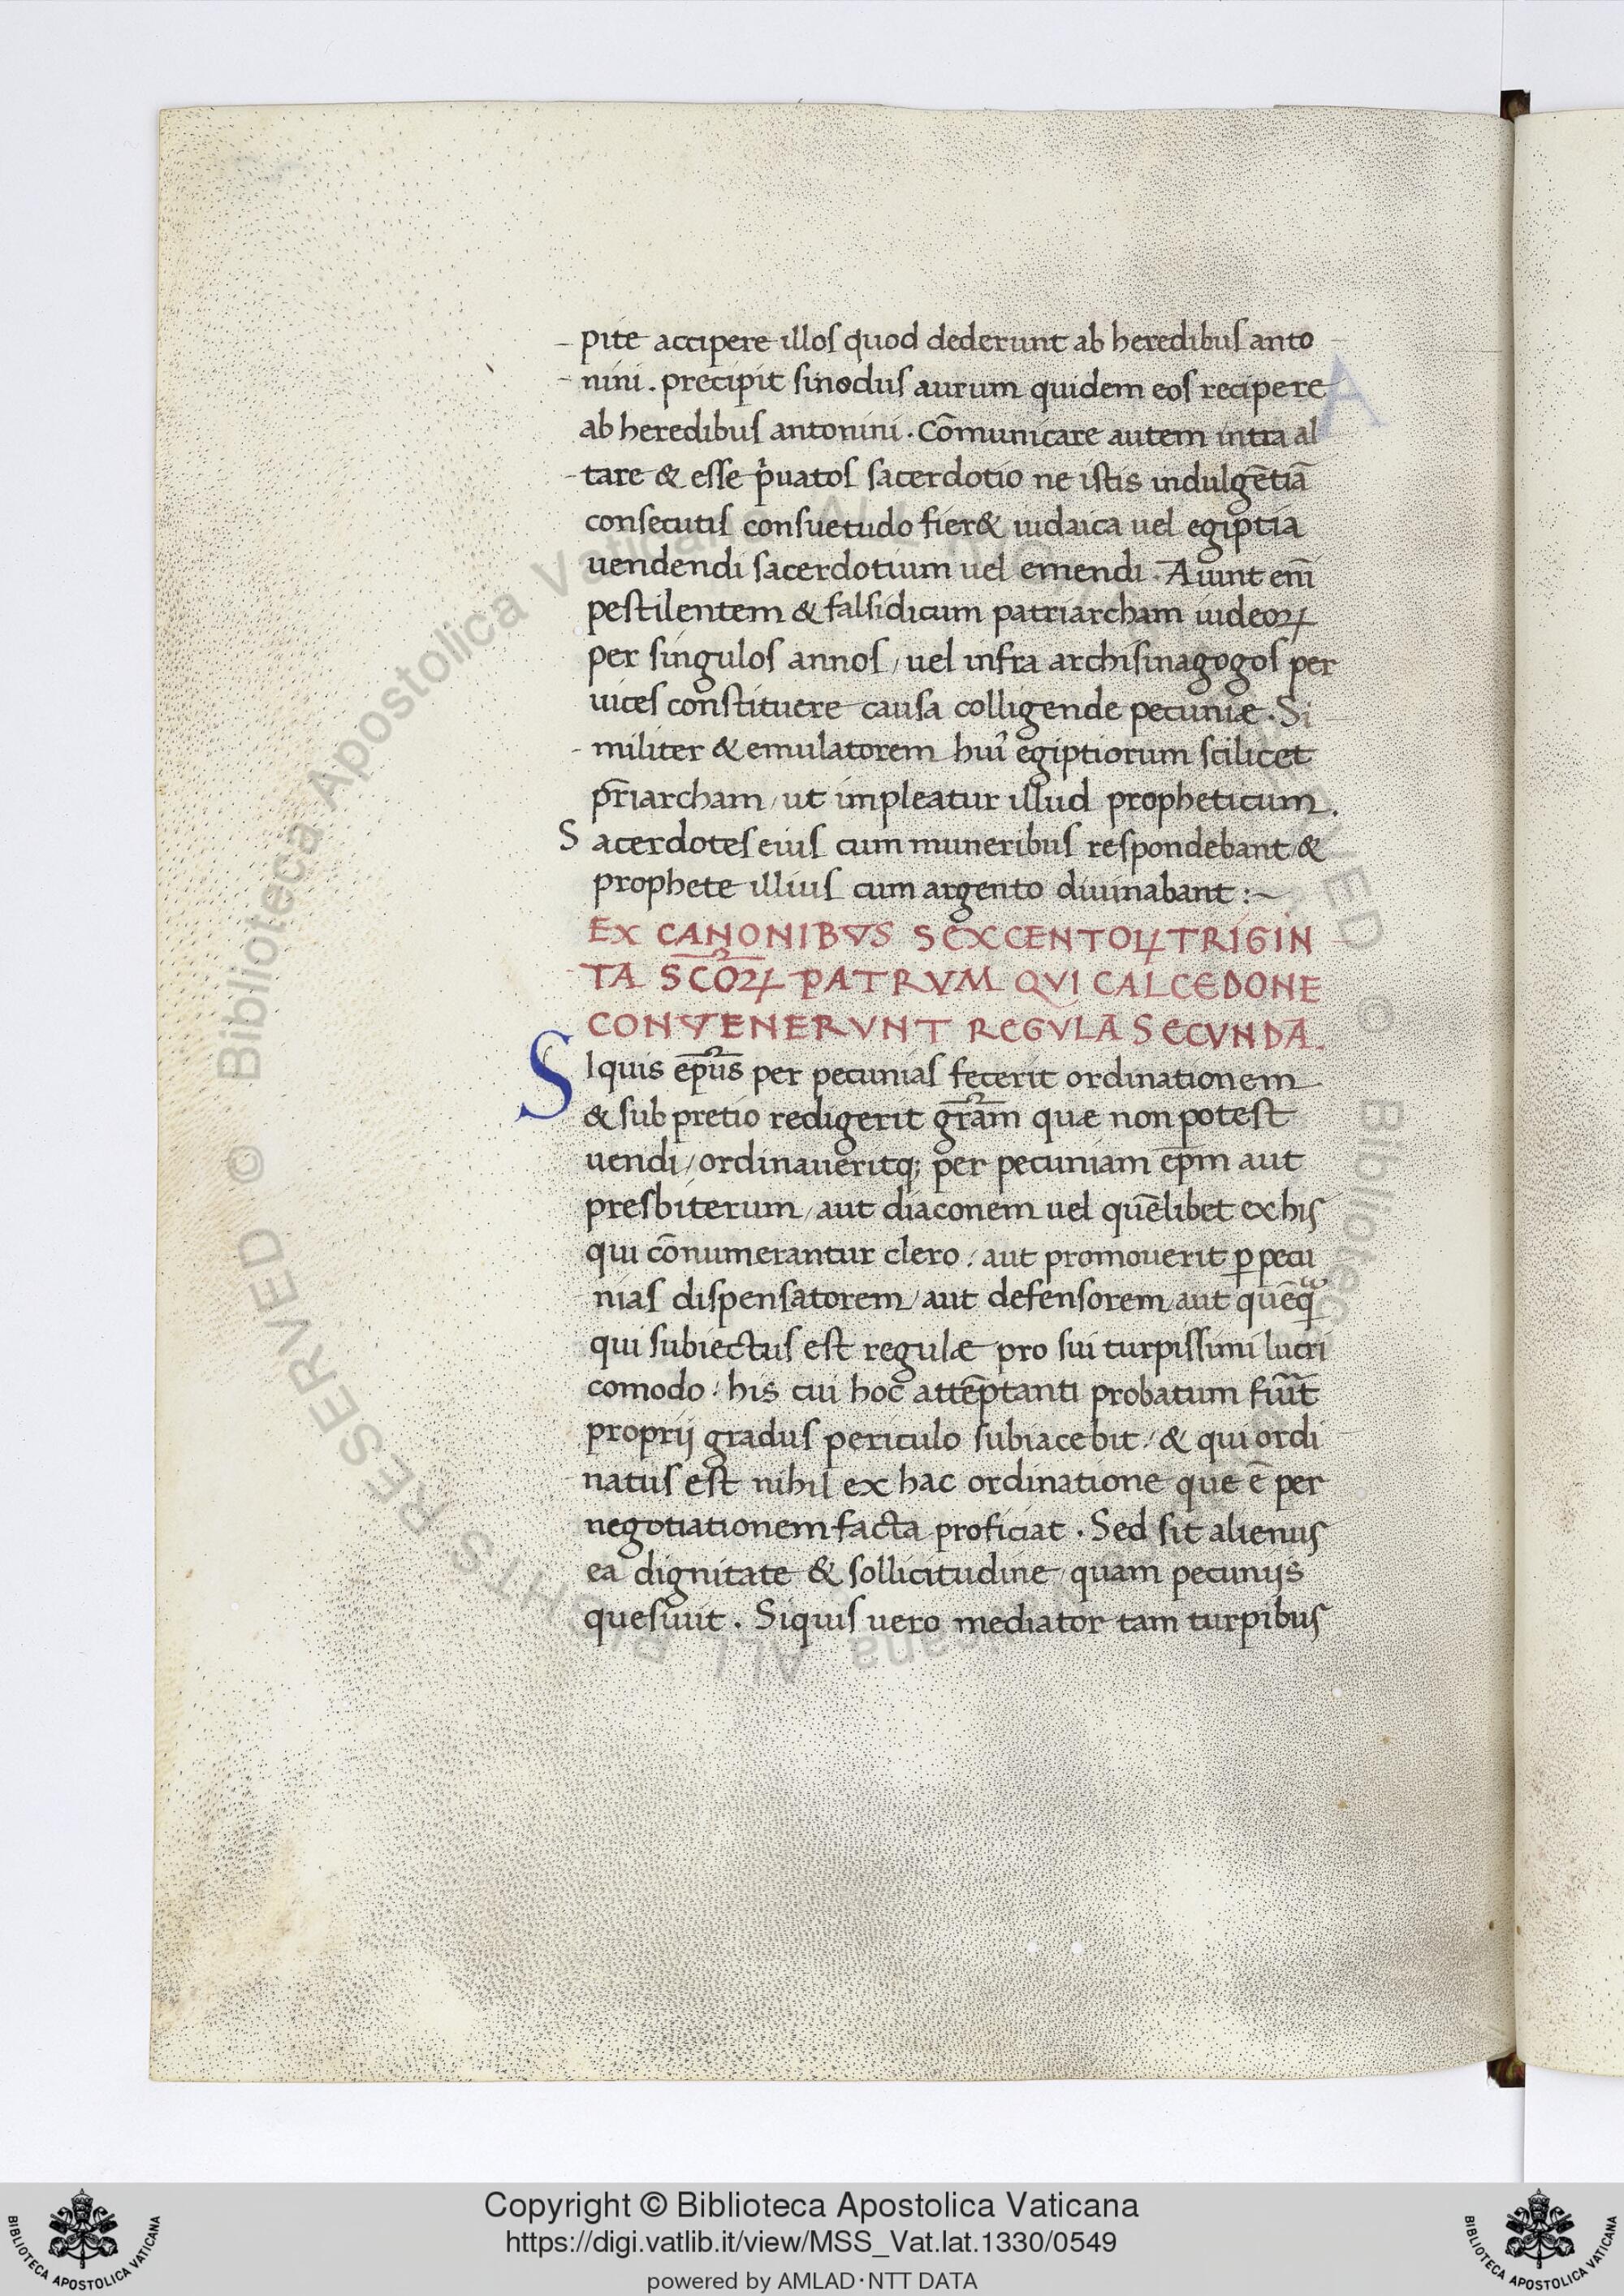 pite accipere illos quod dederunt ab heredibus anto
nini. precipit sinodus aurum quidem eos recipere
ab heredibus antonini. Cōmunicare autem intra al
tare & esse pͥuatos sacerdotio ne istis indulgētiā
consecutis consuetudo fier& iudaica uel egiptia
uendendi sacerdotium uel emendi. Aiunt eni̅
pestilentem & falsidicum patriarcham iudeoꝝ
per singulos annos / uel infra archisinagogos per
uices constituere causa colligende pecuniæ. Si
militer & emulatorem huiꝰ egiptiorum scilicet
pr̄iarcham / ut impleatur illud propheticum.
Sacerdotes eius cum muneribus respondebant &
prophete illius cum argento diuinabant :~
EX CANONIBVS SEXCENTOꝝ TRIGIN
TA SC̅Oꝝ PATRVM QVI CALCEDONE
CONVENERVNT REGVLA SECVNDA.
SIquis ep̅us per pecunias fecerit ordinationem
& sub pretio redigerit gr̅am quæ non potest
uendi / ordinaueritq; per pecuniam ep̅m aut
presbiterum / aut diaconem uel quēlibet ex his
qui cōnumerantur clero / aut promouerit ꝑ pecu
nias dispensatorem / aut defensorem / aut quēqᷓ
qui subiectus est regulæ pro sui turpissimi lucri
comodo / his cui hoc attēptanti probatum fuı̅t
proprij gradus periculo subiacebit / & qui ordi
natus est nihil ex hac ordinatione que ē per
negotiationem facta proficiat. Sed sit alienus
ea dignitate & sollicitudine / quam pecunijs
quesiuit. Siquis uero mediator tam turpibus
Biblioteca Apostolica Vaticana ALL RIGHTS RESERVED ©
Copyright © Biblioteca Apostolica Vaticana
https://digi.vatlib.it/view/MSS_Vat.lat.1330/0549
powered by AMLAD·NTT DATA
BIBLIOTECA APOSTOLICA VATICANA
BIBLIOTECA APOSTOLICA VATICANA